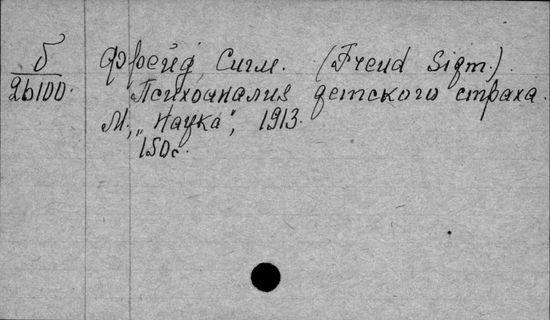 б
26100.
Фрейд Сигм. (Freud Sigm.)
Психоанализ детского страха.
М., „Наука“, 1913.
150с.